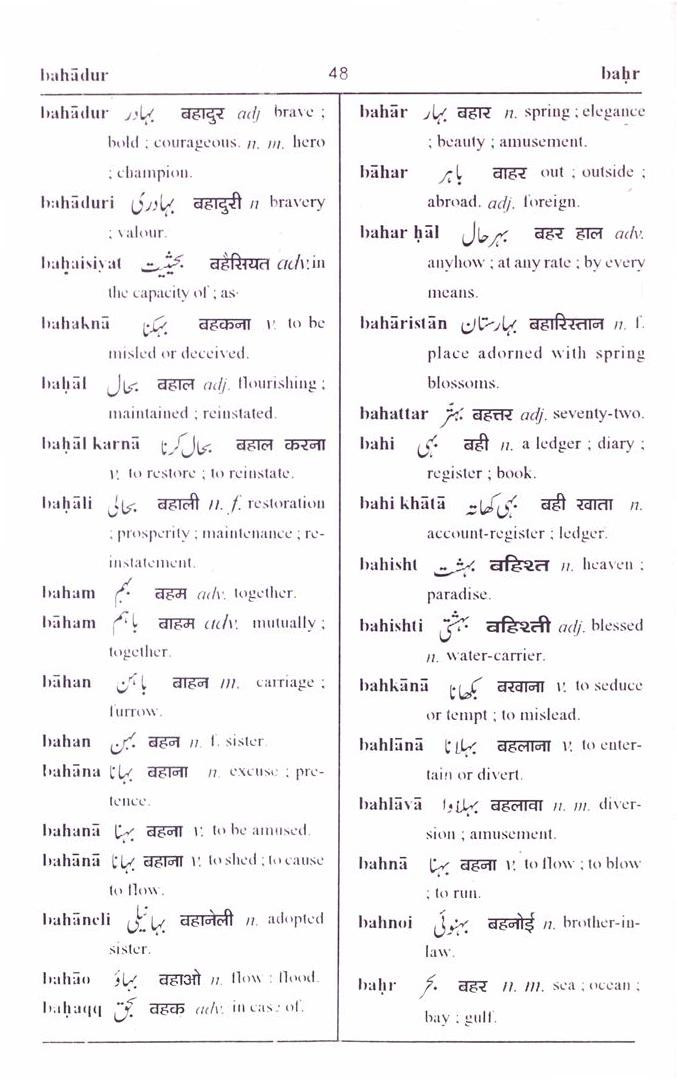 bahādur 48 baḥr
bahādur بہادر बहादुर adj brave ;
bold ; courageous. n. m. hero
; champion.
bahāduri بہادری बहादुरी n bravery
; valour.
baḥaisiyat بحیثیت बहैसियत adv. in
the capacity of ; as
bahaknā بہکنا बहकना v. to be
misled or deceived.
baḥāl بحال बहाल adj. flourishing ;
maintained ; reinstated.
baḥāl karnā بحال کرنا बहाल करना
v. to restore ; to reinstate.
baḥāli بحالی बहाली n. f. restoration
; prosperity ; maintenance ; re-
instatement.
baham بہم बहम adv. together.
bāham باہم बाहम adv. mutually ;
together.
bāhan باہن बाहन m. carriage ;
furrow.
bahan بہن बहन n. f. sister.
bahāna بہانا बहाना n. excuse ; pre-
tence.
bahanā بہنا बहना v. to be amused.
bahānā بہانا बहाना v. to shed ; to cause
to flow.
bahāneli بہانیلی बहानेली n. adopted
sister.
bahāo بہاؤ बहाओ n. flow ; flood.
baḥaqq بحق बहक adv. in case of.
bahār بہار बहार n. spring ; elegance
; beauty ; amusement.
bāhar باہر बाहर out ; outside ;
abroad. adj. foreign.
bahar ḥāl بہرحال बहर हाल adv.
anyhow ; at any rate ; by every
means.
bahāristān بہارستان बहारिस्तान n. f.
place adorned with spring
blossoms.
bahattar بہتّر बहत्तर adj. seventy-two.
bahi بہی बही n. a ledger ; diary ;
register ; book.
bahi khātā بہی کھاتہ बही खाता n.
account-register ; ledger.
bahisht بہشت बहिश्त n. heaven ;
paradise.
bahishti بہشتی बहिश्ती adj. blessed
n. water-carrier.
bahkānā بکھانا बखाना v. to seduce
or tempt ; to mislead.
bahlānā بہلانا बहलाना v. to enter-
tain or divert.
bahlāvā بہلاوا बहलावा n. m. diver-
sion ; amusement.
bahnā بہنا बहना v. to flow ; to blow
; to run.
bahnoi بہنوئی बहनोई n. brother-in-
law.
baḥr بحر बहर n. m. sea ; ocean ;
bay ; gulf.